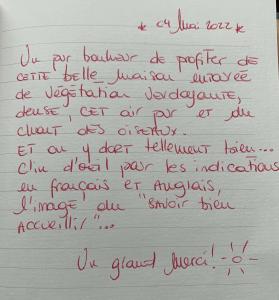 * 04 Mai 2022 *
Un pur bonheur de profiter de
CETTE belle maison entourée
de végétation verdoyante,
dense, CET air pur et du
chant des oiseaux.
ET on y dort tellement bien...
Clin d'œil pour les indications
en français et Anglais,
l'image du "savoir bien
accueillir"...
Un grand Merci!